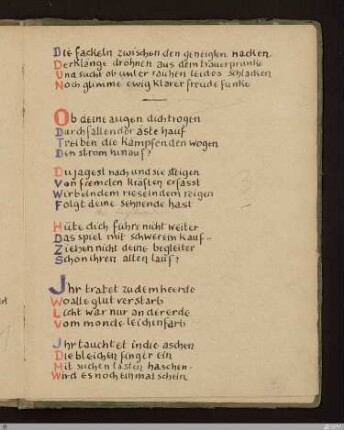 Die fackeln zwischen den geneigten nacken
Der klänge dröhnen aus dem trauerprunke
Und sucht ob unter rauhen leides schlacken
Noch glimme ewig klarer freude funke
Ob deine augen dich trogen
Durch fallender äste hauf
Treiben die kämpfenden wogen
Den strom hinauf?
Du jagest nach und sie steigen
Von fremden kräften erfasst
Wirbelndem rieselndem reigen
Folgt deine sehnende hast
Hüte dich führe nicht weiter
Das spiel mit schwerem kauf-
Ziehen nicht deine begleiter
Schon ihren alten lauf?
Ihr tratet zu dem herde
Wo alle glut verstarb
Licht war nur an der erde
Vom monde leichenfarb
Ihr tauchtet in die aschen
Die bleichen finger ein
Mit suchen tasten haschen-
Wird es noch einmal schein